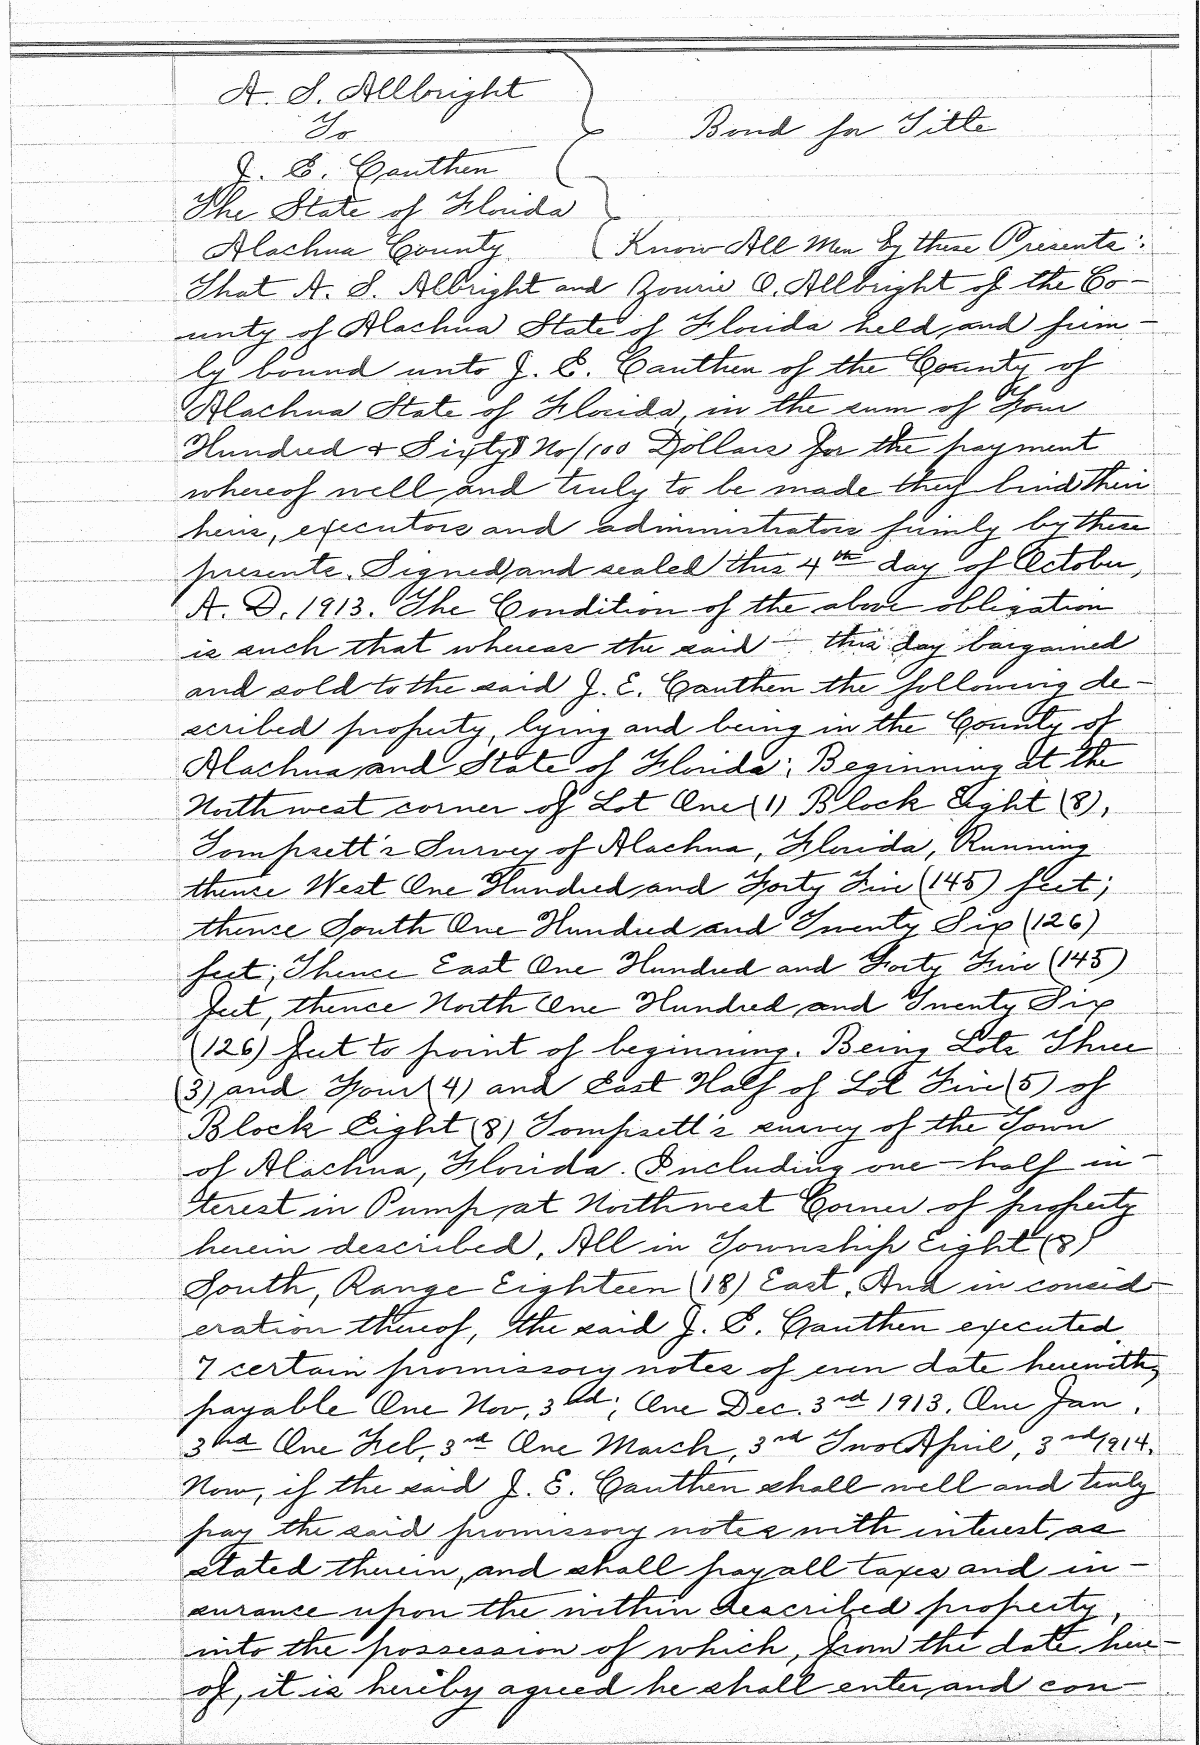 A. S. Allbright
To
Bond for Title
J. E. Cauthen
The State of Florida
Alachua County Know All Men by these Presents:
That A. S. Albright and O. Allbright of the Co-
unty of Alachua State of Florida held and firm-
ly bound unto J. E. Cauthen of the County of
Alachua State of Florida, in the sum of Four
Hundred & Sixty No/100 Dollars for the payment
whereof well and truly to be made they bind their
heirs, executors and administrators firmly by these
presents. Signed and sealed this 4th day of October,
A. D. 1913. The Condition of the above obligation
is such that whereas the said - this day bargained
and sold to the said J. E. Cauthen the following de-
scribed property, lying and being in the County of
Alachua and State of Florida; Beginning at the
Northwest corner of Lot One (1) Block Eight (8),
Tompsett's Survey of Alachua, Florida, Running
thence West One Hundred and Forty Five (145) feet;
thence South One Hundred and Twenty Six (126)
feet; Thence East One Hundred and Forty Five (145)
feet, thence North One Hundred and Twenty Six
(126) feet to point of beginning. Being Lots Three
(3) and Four (4) and East Half of Lot Five (5) of
Block Eight (8) Tompsett's survey of the Town
of Alachua, Florida. Including one-half in-
terest in Pump at Northwest Corner of property
herein described. All in Township Eight (8)
South, Range Eighteen (18) East. And in consid-
eration thereof, the said J. E. Cauthen executed
7 certain promissory notes of even date herewith,
payable One Nov. 3rd; One Dec. 3rd 1913. One Jan.
3rd One Feb. 3rd One March, 3rd Two April, 3rd 1914.
Now, if the said J. E. Cauthen shall well and truly
pay the said promissory notes with interest as
stated therein, and shall pay all taxes and in-
surance upon the within described property,
into the possession of which, from the date here-
of, it is hereby agreed he shall enter and con-